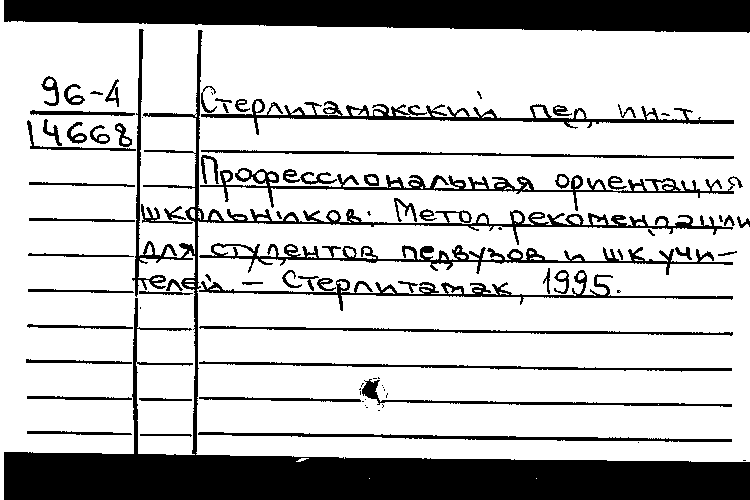 96-4
14668
Стерлитамакский пед. ин-т.
Профессиональная ориентация
школьников: Метод. рекомендации
для студентов педвузов и шк. учи-
телей. - Стерлитамак, 1995.